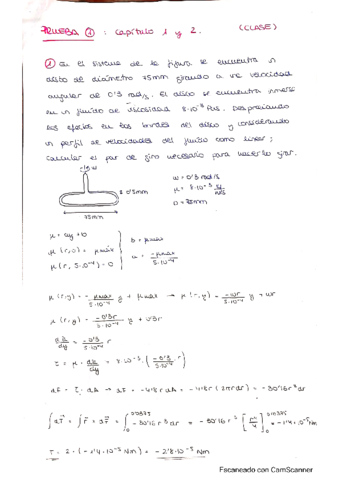 PRUEBA ① : Capítulo 1 y 2. (CLASE)
① En el sistema de la figura se encuentra un
disco de diámetro 75mm girando a una velocidad
angular de 0'3 rad/s. El disco se encuentra inmerso
en un fluido de viscosidad 8·10⁻³ Pa·s. Despreciando
los efectos en los bordes del disco y considerando
un perfil de velocidades del fluido como lineal;
calcular el par de giro necesario para hacerlo girar.
ω = 0'3 rad/s
μ = 8·10⁻³
D = 75mm
0'5mm
75mm
μ = ay + b
b = μmax
μ (r, 0) = μmax
a = -μmax / 5·10⁻⁴
μ (r, 5·10⁻⁴) = 0
μ (r, y) = -μmax / 5·10⁻⁴ y + μmax → μ (r, y) = -ωr / 5·10⁻⁴ y + ωr
μ (r, y) = -0'3r / 5·10⁻⁴ y + 0'3r
dμ / dy = -0'3 / 5·10⁻⁴ r
τ = μ · dμ / dy = 8·10⁻³ · ( -0'3 / 5·10⁻⁴ r )
dF = τ · dA → dF = -4'8r dA = -4'8r (2πr dr) = -30'16 r² dr
Escaneado con CamScanner